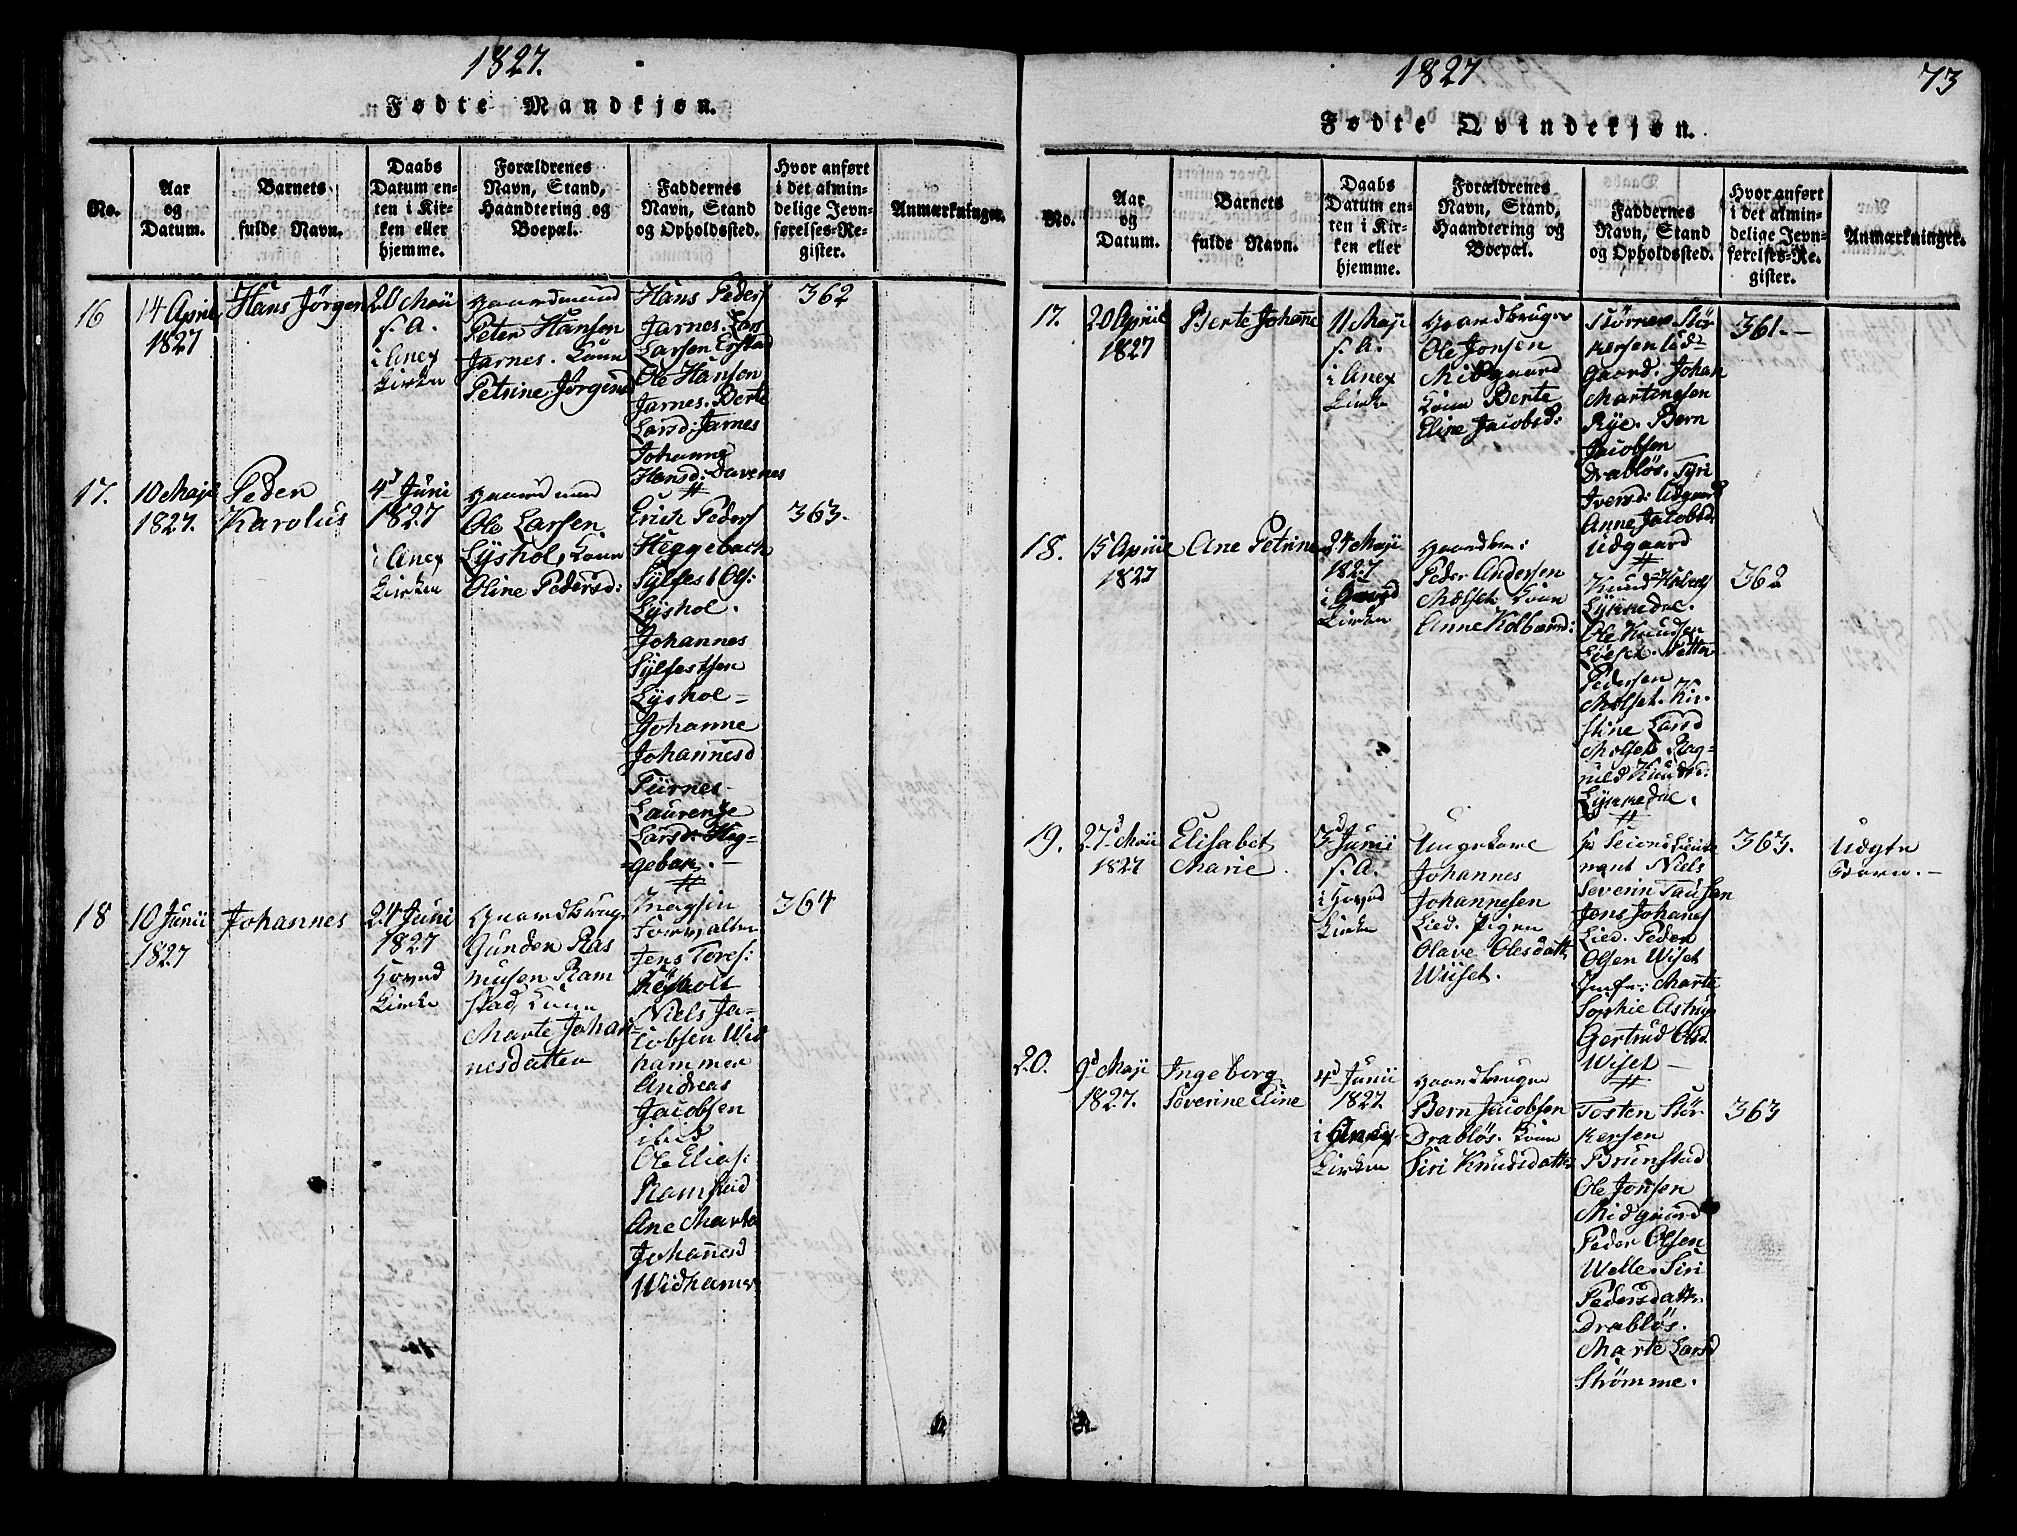 1827.
Fødte Mandkjøn.
No.
Aar
og
Datum.
Barnets
fulde Navn.
Daabs
Datum en-
ten i Kir-
ken eller
hjemme.
Forældrenes
Navn, Stand,
Haandtering og
Boepæl.
Faddernes
Navn, Stand
og Opholdssted.
Hvor anført
i det almin-
delige Jevn-
førelses-Re-
gister.
Anmærkninger.
16
14 April
1827
Hans Jørgen
20 Maii
s. A.
i Anex
Kirken
Gaardmand
Peter Hansen
Jarnes. Kone
Petrine Jørgensd
Hans Peders
Jarnes. Lars
Larsen Erstad
Ole Hansen
Jarnes. Berte
Larsd: Jarnes
Johanne
Hansd: Davenes
362
17.
10 Maji
1827.
Peder
Karolus
4d Juni
1827
i Anex
Kirken
Gaardmand
Ole Larsen
Lyshol, Kone
Oline Pedersd:
Erich Peders
Heggebach
Sylfest Ols:
Lyshol.
Johannes
Sylfestsen
Lyshol-
Johanne
Johannesd
Turnes-
Laurense
Larsd: Heg-
=gebak.-
363.
18
10 Junii
1827
Johannes
24 Juni
1827
Hoved
Kirken
Gaardbruger
Gunder Ras
musen Ram
stad, Kone
Marte Johan
nesdatter
Magsin
Forvalter
Jens Tores:
Røsholt
Niels Ja-
cobsen Wid
hammer
Andreas
Jacobsen
ibid
Ole Elias:
Ramstad
Ane Marte
Johanesd
Widhamer
364
1827
73
Fødte Qvindekjøn.
No.
Aar
og
Datum.
Barnets
fulde Navn.
Daabs
Datum en-
ten i Kir-
ken eller
hjemme.
Forældrenes
Navn, Stand,
Haandtering og
Boepæl.
Faddernes
Navn, Stand
og Opholdssted.
Hvor anført
i det almin-
delige Jevn-
førelses-Re-
gister.
Anmærkninger.
17.
20 April
1827
Berte Johanne
11 Maji
s. A.
i Anex
Kirke
Gaardbruger
Ole Jonsen
Midgaard
Kone Berte
Eline Jacobsd:
Størker Stør
kersen Ud-
gaard. Johan
Martinsen
Rye. Bern
Jacobsen
Drabløs. Syri
Iversd: Udgaard
Anne Jacobsd
Udgaard
361.-
18.
15 April
1827
Ane Petrine
24 Maji
1827
i Hoved
Kirken
Gaardbr:
Peder Andersen
Molset Kone
Anne Kolbænsd:
Knud
Lykkedal.
Ole Knudsen
Petter
Pedersen
Molset. Kir-
stine Larsd
Molset. Rag-
nild Knudsd:
Lykkedal.
362
19.
27d Maii
1827
Elisabet
Marie.
3d Junii
s. A.
i Hoved
Kirken
Ungekarl
Johannes
Johannesen
Lied. Pigen
Olave Olesdatt
Wiiset.
Hr Seconslieute
nant Niels
Severin Tausan
Jens Johanes
Lied. Peder
Olsen Wiset
Jmfr: Marte
Sophie Astrup
Gertrud Olsd
Wiset-
363.
Udgte
Barn.-
20.
9d Maji
1827.
Ingeborg
Severine Eline
4d Junii
1827
i Anex
Kirken
Gaardbruger
Bern Jacobsen
Drabløs. Kone
Siri Knudsdatter
Tosten Stør
kersen
Brunstad
Ole Jonsen
Midgaard
Peder Olsen
Welle. Siri
Pedersdatter
Drabløs.
Marte Larsd
Strømme.
363